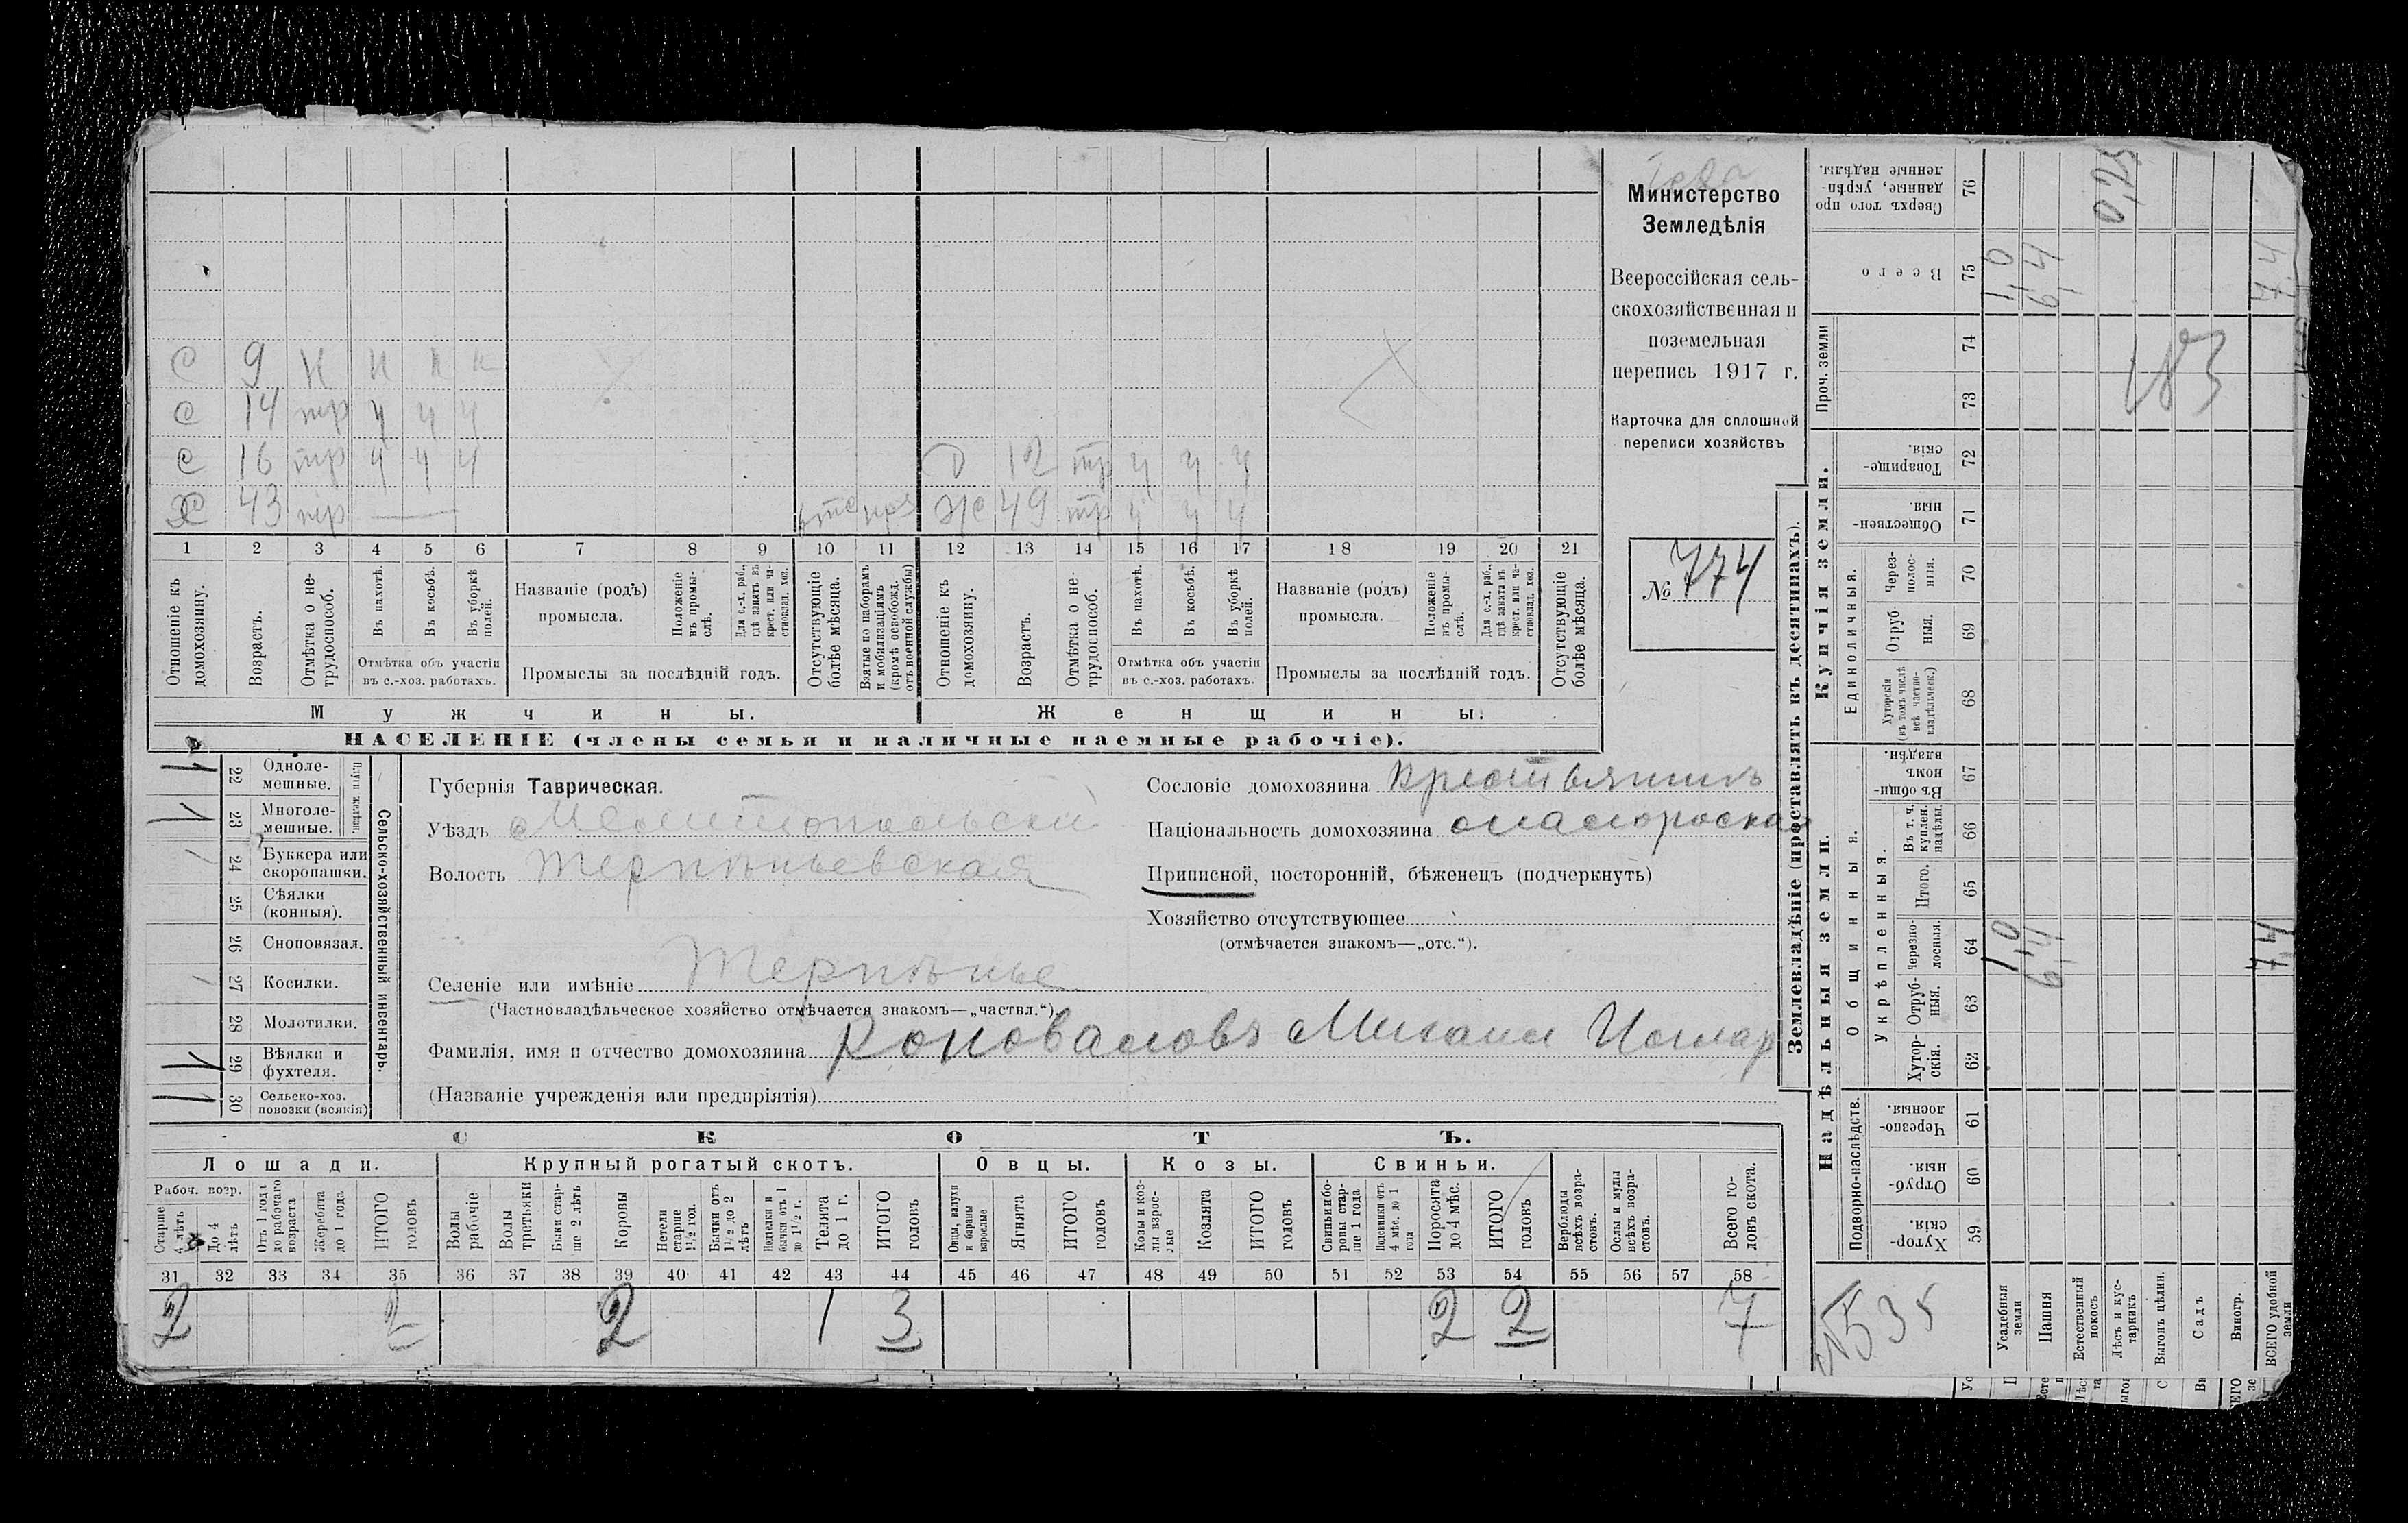 Министерство
Земледѣлія
Всероссійская сель-
скохозяйственная и
поземельная
перепись 1917 г.
Карточка для сплошной
переписи хозяйствъ
№ 774
С 9 н н н н
С 14 тр ч ч ч
С 16 тр ч ч ч Д 12 тр ч ч ч
Х 43 тр — отс Ж 49 тр ч ч ч
1 2 3 4 5 6 7 8 9 10 11 12 13 14 15 16 17 18 19 20 21
Отношеніе къ домохозяину.
Возрастъ.
Отмѣтка о не-трудоспособ.
Въ пахотѣ.
Въ косьбѣ.
Въ уборкѣ полей.
Отмѣтка объ участіи въ с.-хоз. работахъ.
Названіе (родъ) промысла.
Положеніе въ промы-слѣ.
Для с.-х. раб., гдѣ занятъ въ крест. или ча-стновлад. хоз.
Промыслы за послѣдній годъ.
Отсутствующіе болѣе мѣсяца.
Взятые по наборамъ и мобилизаціямъ (кромѣ освобожд. отъ военной службы)
Отношеніе къ домохозяину.
Возрастъ.
Отмѣтка о не-трудоспособ.
Въ пахотѣ.
Въ косьбѣ.
Въ уборкѣ полей.
Отмѣтка объ участіи въ с.-хоз. работахъ.
Названіе (родъ) промысла.
Положеніе въ промы-слѣ.
Для с.-х. раб., гдѣ занята въ крест. или ча-стновлад. хоз.
Промыслы за послѣдній годъ.
Отсутствующіе болѣе мѣсяца.
Мужчины. Женщины.
НАСЕЛЕНІЕ (члены семьи и наличные наемные рабочіе).
Сельско-хозяйственный инвентарь.
Плуги желѣзн.
1 22 Одноле-мешные.
1 23 Многоле-мешные.
24 Буккера или скоропашки.
25 Сѣялки (конныя).
26 Сноповязал.
27 Косилки.
28 Молотилки.
1 29 Вѣялки и фухтеля.
1 30 Сельско-хоз. повозки (всякія)
Губернія Таврическая.
Уѣздъ Мелитопольскій
Волость Терпѣньевская
Селеніе или имѣніе Терпѣнье
(Частновладѣльческое хозяйство отмѣчается знакомъ—„частвл.“)
Фамилія, имя и отчество домохозяина Коноваловъ Михаил
(Названіе учрежденія или предпріятія)
Сословіе домохозяина крестьянинъ
Національность домохозяина малоросска
Приписной, посторонній, бѣженецъ (подчеркнуть)
Хозяйство отсутствующее
(отмѣчается знакомъ—„отс.“).
СКОТЪ.
Лошади. Крупный рогатый скотъ. Овцы. Козы. Свиньи.
Рабоч. возр.
Старше 4 лѣтъ
До 4 лѣтъ
Отъ 1 года до рабочаго возраста
Жеребята до 1 года
ИТОГО головъ
Волы рабочіе
Волы третьяки
Быки стар-ше 2 лѣтъ
Коровы
Нетели старше 1 1/2 год.
Бычки отъ 1 1/2 до 2 лѣтъ
Подтелки и бычки отъ 1 до 1 1/2 г.
Телята до 1 г.
ИТОГО головъ
Овцы, валухи и бараны взрослые
Ягнята
ИТОГО головъ
Козы и коз-лы взрос-лые
Козлята
ИТОГО головъ
Свиньи и бо-ровы стар-ше 1 года
Подсвинки отъ 4 мѣс. до 1 года
Поросята до 4 мѣс.
ИТОГО головъ
Верблюды всѣхъ возра-стовъ.
Ослы и мулы всѣхъ возра-стовъ.
Всего го-ловъ скота.
31 32 33 34 35 36 37 38 39 40 41 42 43 44 45 46 47 48 49 50 51 52 53 54 55 56 57 58
2 2 2 1 3 2 2 7
Землевладѣніе (проставлять въ десятинахъ).
Надѣльныя земли. Купчія земли. Проч. земли
Подворно-наслѣдств.
Общинныя.
Укрѣпленныя.
Единоличныя.
Хутор-скія. 59
Отруб-ныя. 60
Черезпо-лосныя. 61
Хутор-скія. 62
Отруб-ныя. 63
Черезпо-лосныя. 64
Итого. 65
Въ т. ч. куплен. надѣлы. 66
Въ общи-номъ владѣн. 67
Хуторскія (въ томъ числѣ всѣ частно-владѣльческ.) 68
Отруб-ныя. 69
Через-полос-ныя. 70
Обществен-ныя. 71
Товарище-скія. 72
73
74
Всего 75
Сверхъ того про-данные, укрѣп-ленные надѣлы. 76
Усадебныя земли 1,0 1,0
Пашня 6,4 6,4
Естественный покосъ
Лѣсъ и кус-тарникъ
Выгонъ цѣлин.
Садъ
Виногр.
ВСЕГО удобной земли 7,4 7,4
183
№535